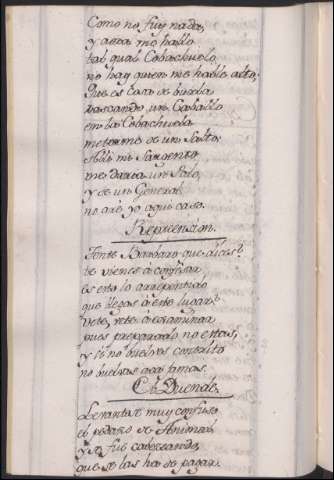 Como no fuy nada,
y aora me hallo
tal qual Cobachuelo
no hay quien me hable alto,
Que es cosa de
buscando un Caballo
en la Cobachuela
meterme de un Salto.
Alli mi Sargento
me daria un Palo,
y de un General
no aré yo aqui caso.
Reprension.
Tente Barbaro que dices?
te vienes á confesar
es esto lo arrepentido
que llegas á este lugar?
Vete, vete á examinar
pues preparado no estas,
y si no buelves contrito
no buelvas acá jamas.
El Duende.
Levantase muy confuso
el pedazo de Animal
y se fue cabeceando,
que se las ha de pagar.